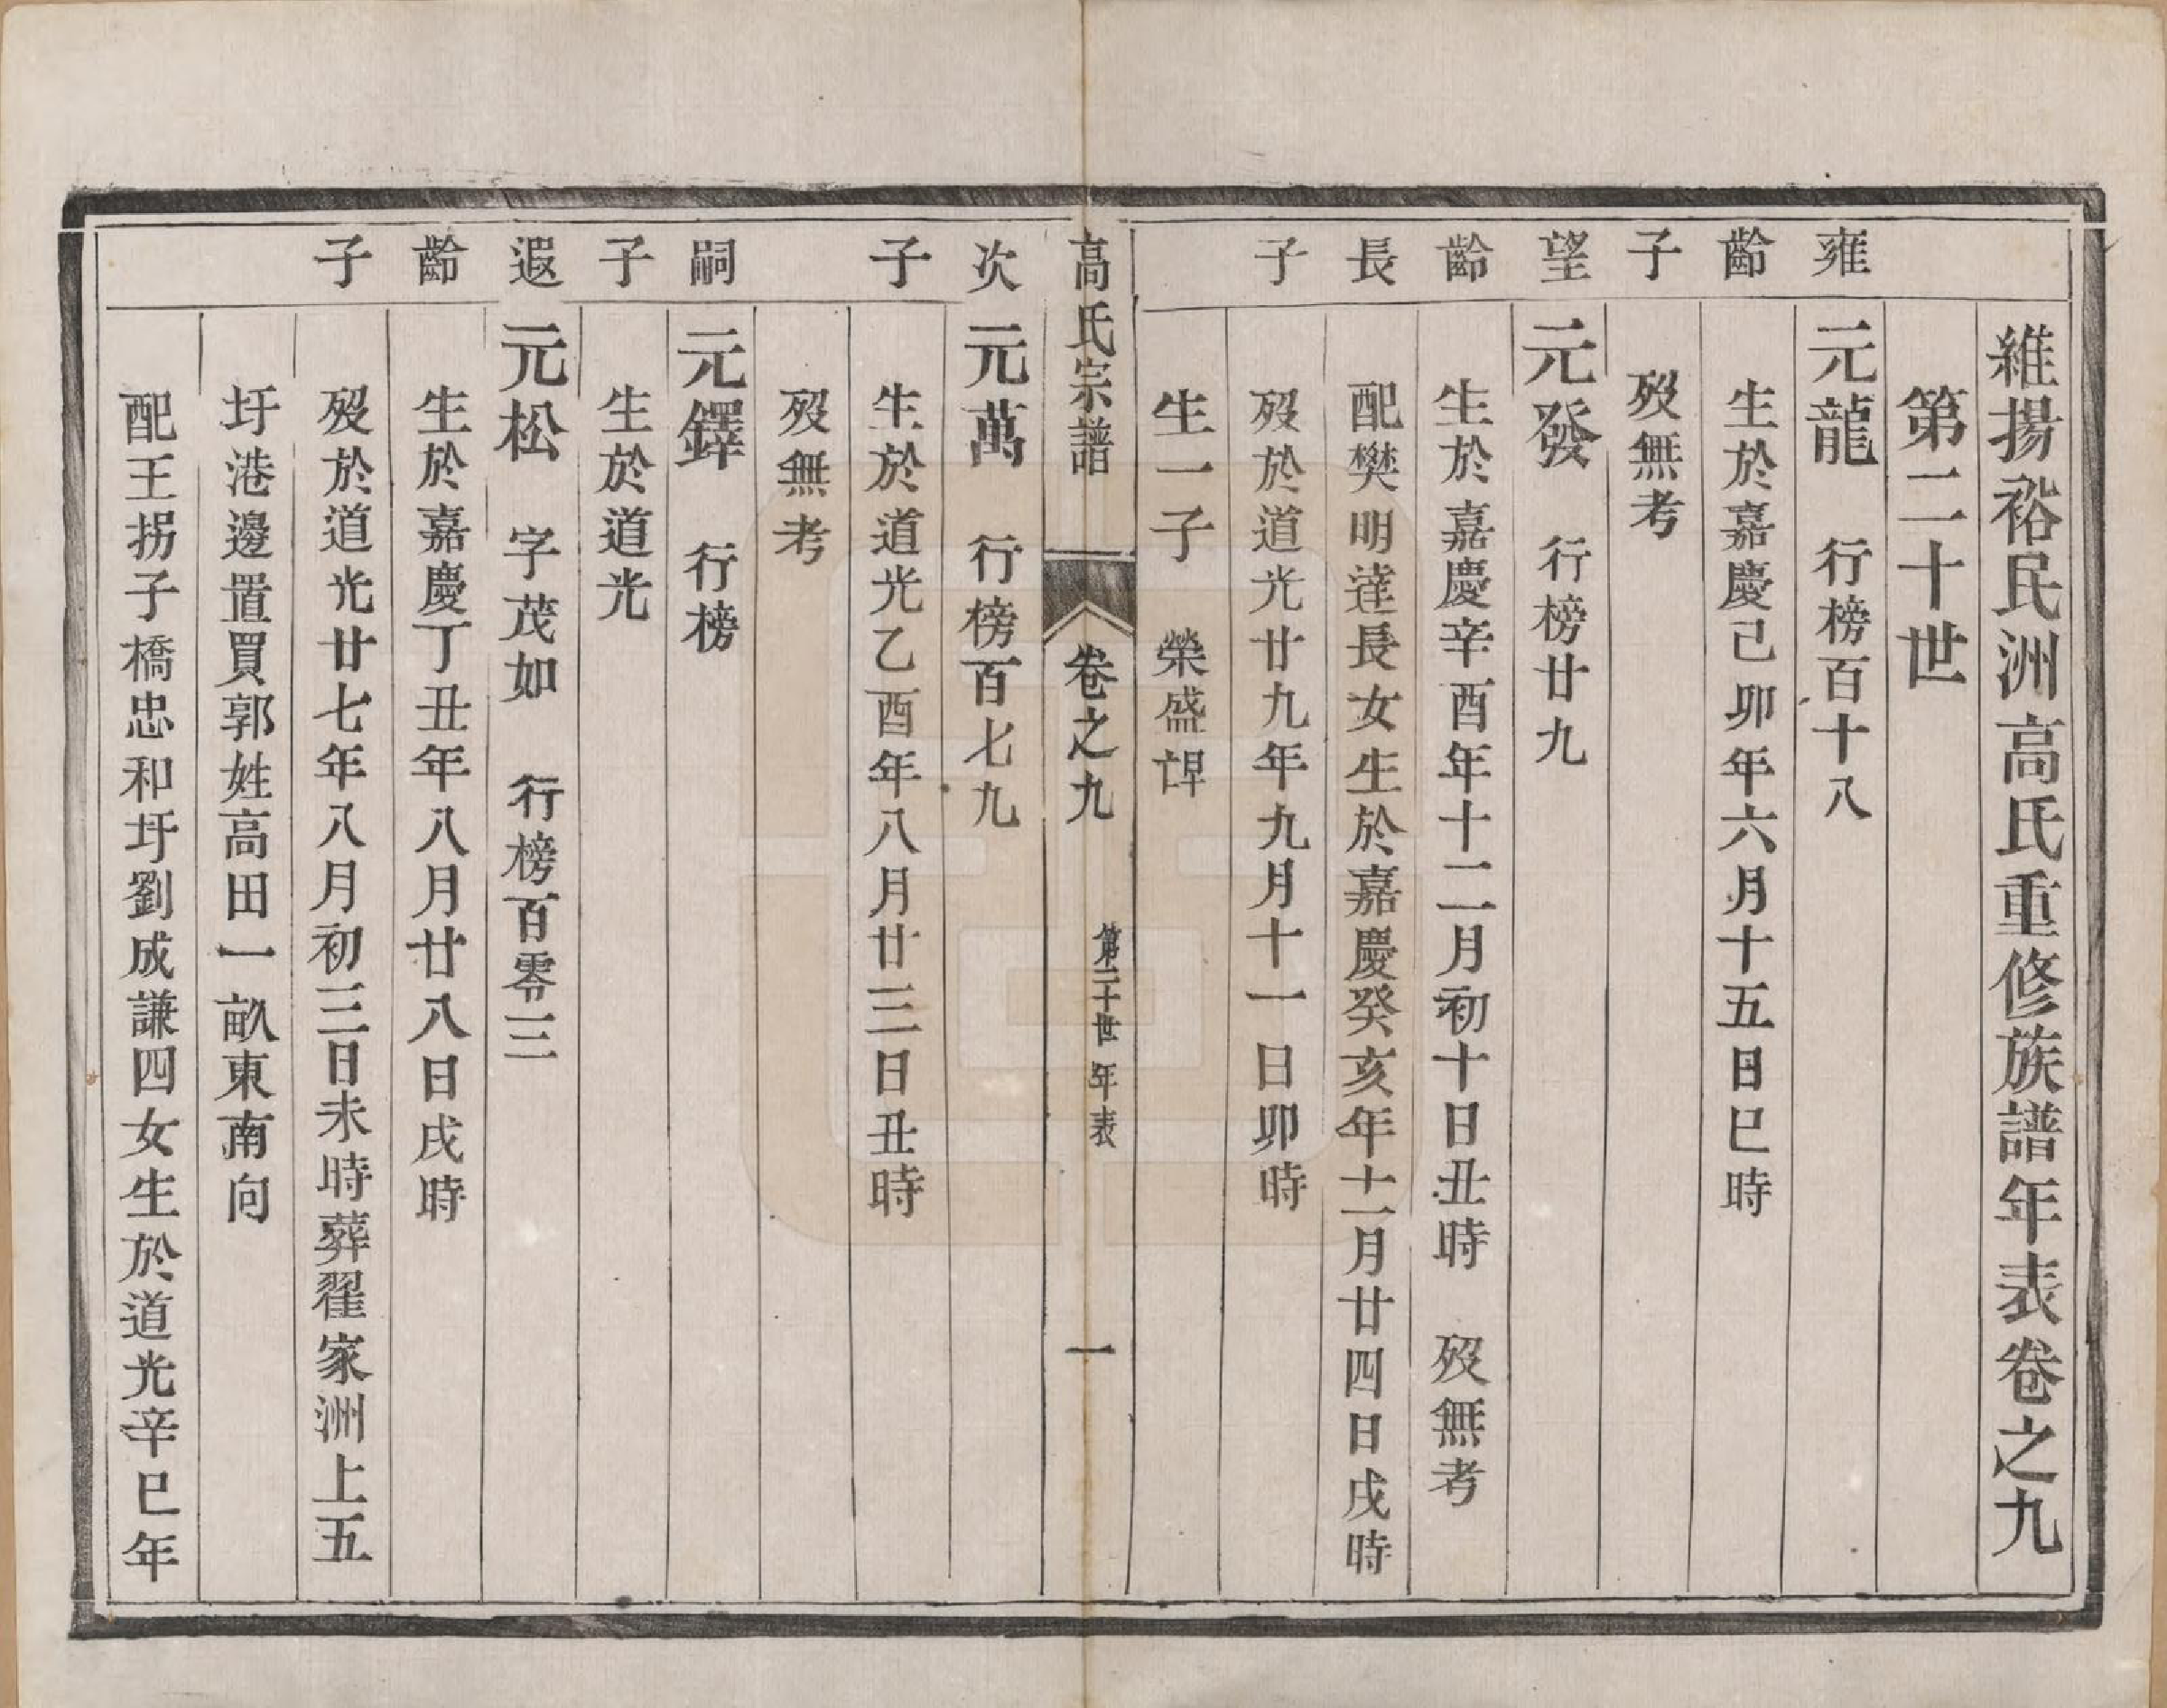 維揚裕民洲高氏重修族譜年表卷之九
第二十世
雍齡子
元龍　行榜百十八
生於嘉慶己卯年六月十五日巳時
歿無考
望齡長子
元發　行榜廿九
生於嘉慶辛酉年十二月初十日丑時　歿無考
配樊明達長女生於嘉慶癸亥年十一月廿四日戌時
歿於道光廿九年九月十一日卯時
生一子　榮盛
高氏宗譜　卷之九　第二十世年表　一
次子
元萬　行榜百七九
生於道光乙酉年八月廿三日丑時
歿無考
嗣子
元鐸　行榜
生於道光
遐齡子
元松　字茂如　行榜百零三
生於嘉慶丁丑年八月廿八日戌時
歿於道光廿七年八月初三日未時葬翟家洲上五
圩港邊置買郭姓高田一畝東南向
配王拐子橋忠和圩劉成謙四女生於道光辛巳年